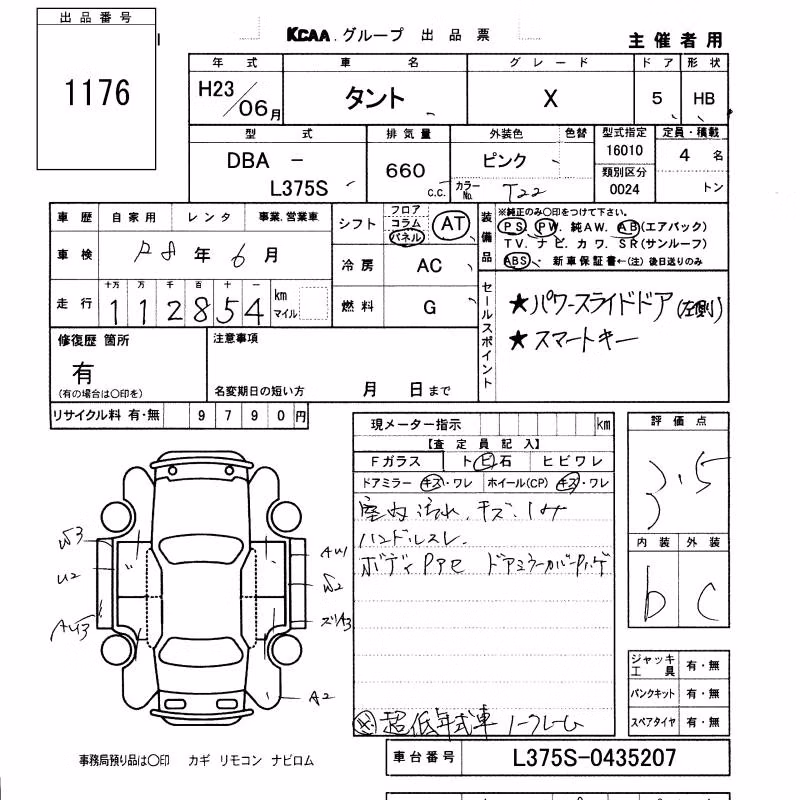 出品番号
1176
KCAA グループ 出品票
主催者用
年式 車名 グレード ドア 形状
H23/06月 タント X 5 HB
型式 排気量 外装色 色替 型式指定 定員・積載
DBA - L375S 660 c.c. ピンク 16010 4 名
カラーNo. T22 類別区分 0024 トン
車歴 自家用 レンタ 事業、営業車
シフト フロア コラム パネル AT
装備品 ※純正のみ〇印をつけて下さい。
PS. PW. 純AW. AB(エアバック)
TV. ナビ. カワ. SR(サンルーフ)
ABS. 新車保証書←(注) 後日送りのみ
車検 R8 年 6 月
冷房 AC
走行 十万 万 千 百 十 一
112854 km マイル
燃料 G
セールスポイント
★パワースライドドア(左側)
★スマートキー
修復歴 箇所
有
(有の場合は〇印を)
注意事項
名変期日の短い方 月 日まで
リサイクル料 有・無 9790円
現メーター指示 km
【査定員記入】
Fガラス トビ石 ヒビワレ
ドアミラー キズ・ワレ ホイール(CP) キズ・ワレ
室内 汚れ、キズ、
ハンドルスレ
ボディ ドアミラーカバー
超低年式車 ノークレーム
評価点
3.5
内装 外装
b C
W3
U2
AU1
W2
A2
ジャッキ工具 有・無
パンクキット 有・無
スペアタイヤ 有・無
事務局預り品は〇印 カギ リモコン ナビロム
車台番号 L375S-0435207